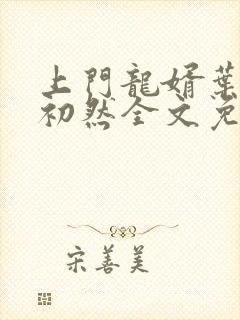 上門龍婿葉
初然全文免
宋善美